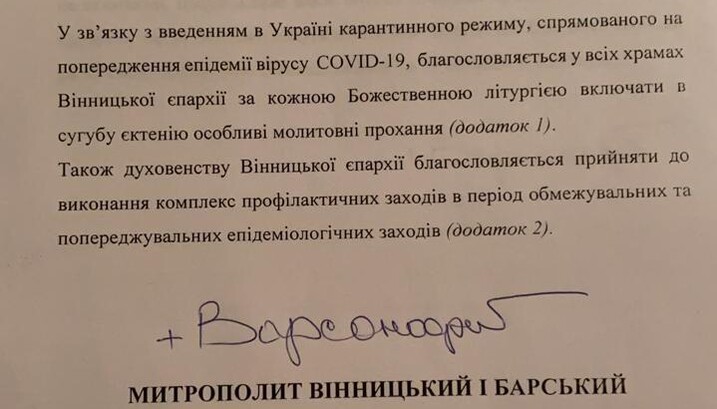 У зв’язку з введенням в Україні карантинного режиму, спрямованого на
попередження епідемії вірусу COVID-19, благословляється у всіх храмах
Вінницької єпархії за кожною Божественною літургією включати в
сугубу єктенію особливі молитовні прохання (додаток 1).
Також духовенству Вінницької єпархії благословляється прийняти до
виконання комплекс профілактичних заходів в період обмежувальних та
попереджувальних епідеміологічних заходів (додаток 2).
+ Варсонофий
МИТРОПОЛИТ ВІННИЦЬКИЙ І БАРСЬКИЙ